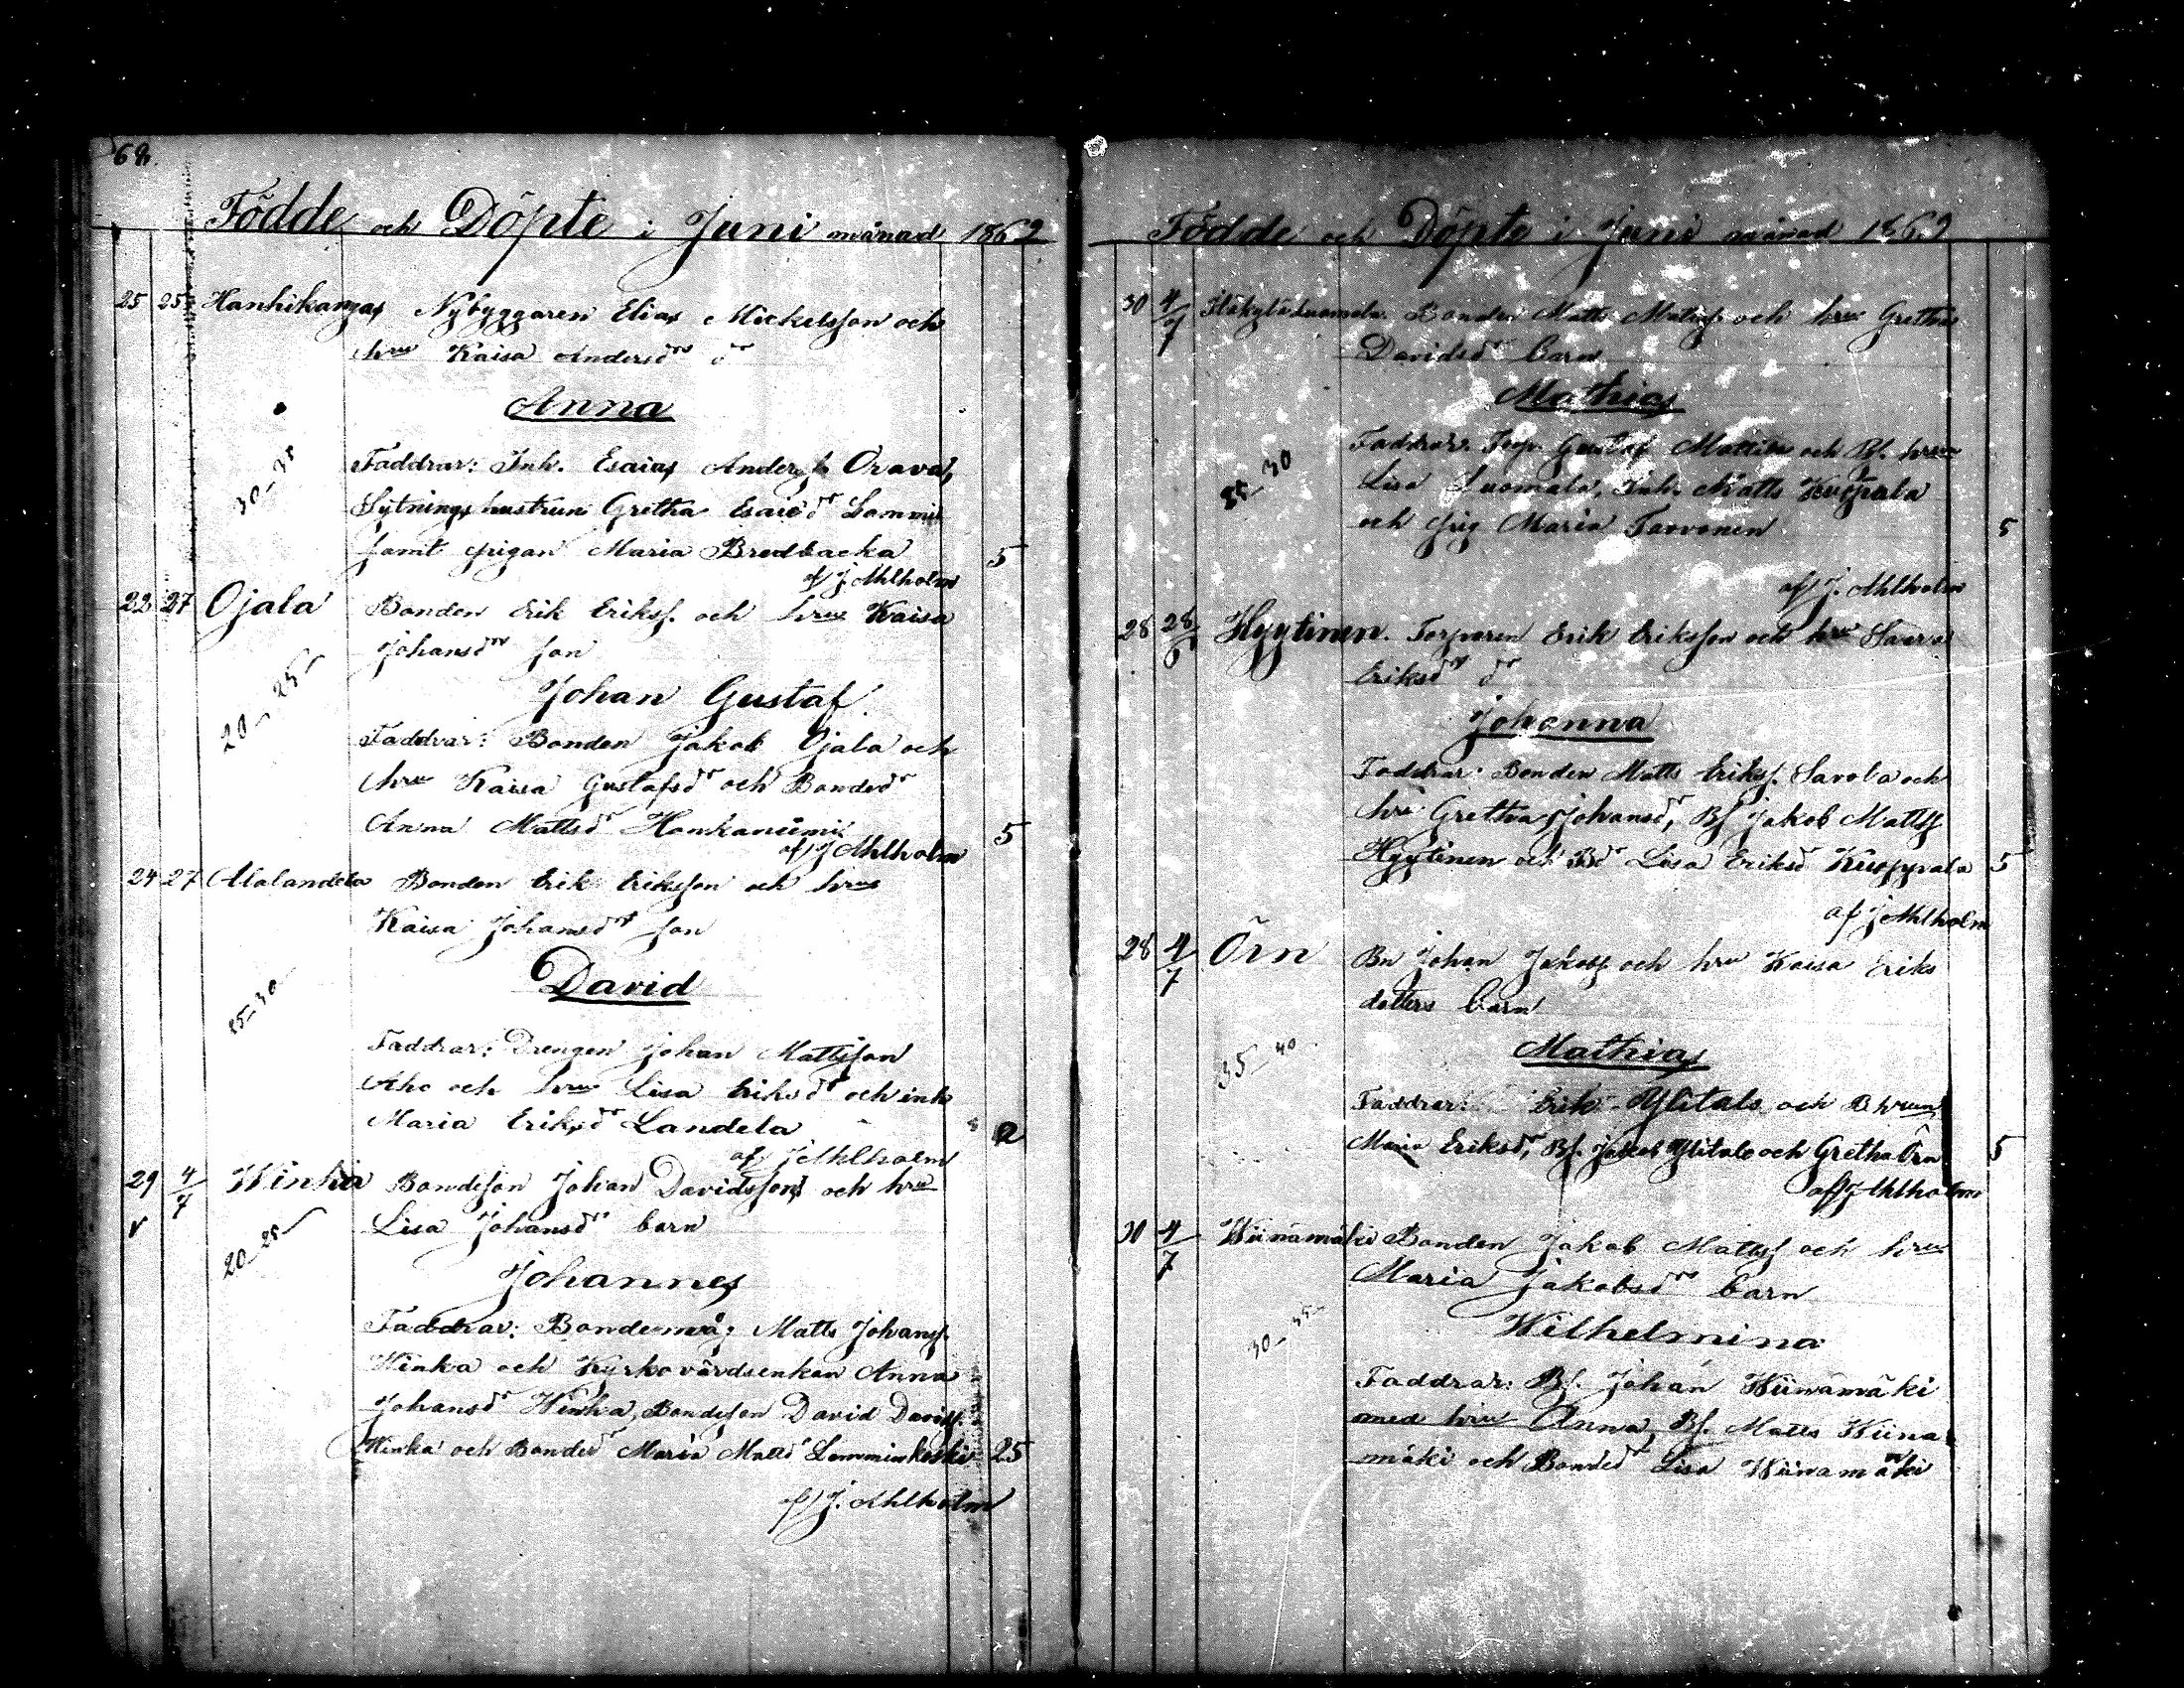 68.
Födde och Döpte i Juni månad 1862
25 25 Hanhikangas Nybyggaren Elias Mickelsson och
hru Kaisa Andersdr dr
Anna
Faddrar: Inh. Esaias Anderss Orava,
30-35
Sytningshustrun Gretha Esaiedr Lammi
samt pigan Maria Bredbacka 5
af J Ahlholm
22 27 Ojala Bonden Erik Erikss. och hru Kaisa
Johansdr son
20-25
Johan Gustaf.
Faddrar: Bonden Jakob Ojala och
hru Kaisa Gustafsdr och Bondedr
Anna Mattsdr Hankaniemi 5
af J Ahlholm
24 27 Alalandela Bonden Erik Eriksson och hru
Kaisa Johansdr son
David
25-30
Faddrar: Drengen Johan Mattsson
Aho och hru Lisa Eriksdr och inh
Maria Eriksdr Landela
af J Ahlholm
29 4/7 Winka Bondeson Johan Davidsson och hru
Lisa Johansdr barn
20-25
Johannes
Faddrar: Bondemåg Matts Johanss.
Winka och Kyrkovärdsenkan Anna
Johansdr Winka, Bondeson David Davidss.
Winka och Bondedr Maria Mattsdr Lamminkoski 25
af J. Ahlholm
Födde och Döpte i Juni månad 1862
30 4/7 Bonden Matts Matss och hru Grethas
Davidsdr barn
Mathias
Faddrar. Torp. Gustaf Mattila och Bf. hru
25-30
Lisa Luomala, Inh. Matts Kuppala
och pig Maria Tarvonen 5
af J. Ahlholm
28 28/6 Hyytinen. Torparen Erik Eriksson och hru Saara
Eriksdr dr
Johanna
Faddrar: Bonden Matts Erikss. Savola och
hru Gretha Johansdr, Bs Jakob Matts
Hyytinen och Bdr Lisa Eriksdr Kuoppala 5
af J Ahlholm
28 4/7 Örn Bn Johan Jakobss och hru Kaisa Eriks
dotters barn
Mathias
35-40
Faddrar: Erik Ylitalo och B hrun
Maria Eriksdr, Bs. Jakob Ylitalo och Gretha Örn 5
af J Ahlholm
30 4/7 Wiinamäki Bonden Jakob Mattss och hru
Maria Jakobsdr barn
Wilhelmina
30-35
Faddrar: Bs. Johan Wiinämäki
med hru Anna, Bs. Matts Wiina
mäki och Bondedr Lisa Wiinamäki